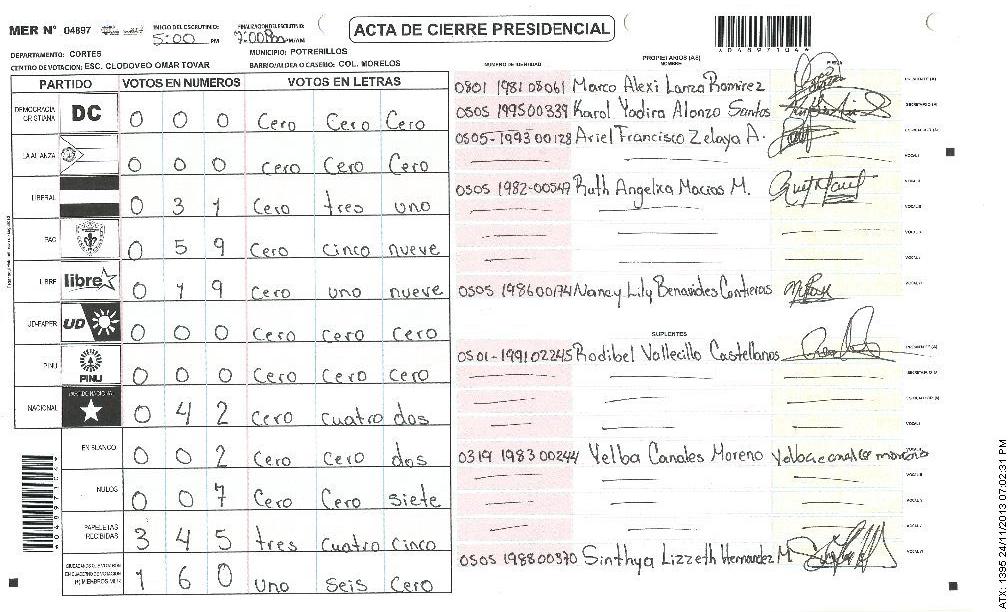 MER Nº 04897 INICIO DEL ESCRUTINIO: 5:00 PM FINALIZACION DEL ESCRUTINIO: 7:00 PM/AM
ACTA DE CIERRE PRESIDENCIAL
DEPARTAMENTO: CORTES MUNICIPIO: POTRERILLOS
CENTRO DE VOTACION: ESC. CLODOVEO OMAR TOVAR BARRIO/ALDEA O CASERIO: COL. MORELOS
PARTIDO VOTOS EN NUMEROS VOTOS EN LETRAS
DEMOCRACIA CRISTIANA DC 0 0 0 Cero Cero Cero
LA ALIANZA 0 0 0 Cero Cero Cero
LIBERAL 0 3 1 Cero tres uno
PAC 0 5 9 Cero Cinco nueve
LIBRE libre 0 1 9 Cero uno nueve
UD-FAPER UD 0 0 0 Cero Cero Cero
PINU PINU 0 0 0 Cero Cero Cero
NACIONAL PARTIDO NACIONAL 0 4 2 Cero cuatro dos
EN BLANCO 0 0 2 Cero Cero dos
NULOS 0 0 7 Cero Cero siete
PAPELETAS RECIBIDAS 3 4 5 tres Cuatro Cinco
1 6 0 uno seis Cero
NUMERO DE IDENTIDAD PROPIETARIOS (AS) NOMBRE FIRMA
0801 1981 08061 Marco Alexi Lanza Ramirez
0505 199500339 Karol Yadira Alonzo Santos SECRETARIO (A)
0505-1993 00128 Ariel Francisco Zelaya A.
VOCAL I
0505 1982-00549 Ruth Angelica Macias M.
0505 198600174 Nancy Lily Benavides Contreras
SUPLENTES
0501-199102245 Rodibel Vallecillo Castellanos
0319 1983 00244 Yelba Canales Moreno
0505 198800370 Sinthya Lizzeth Hernandez M
ATX: 1395 24/11/2013 07:02:31 PM